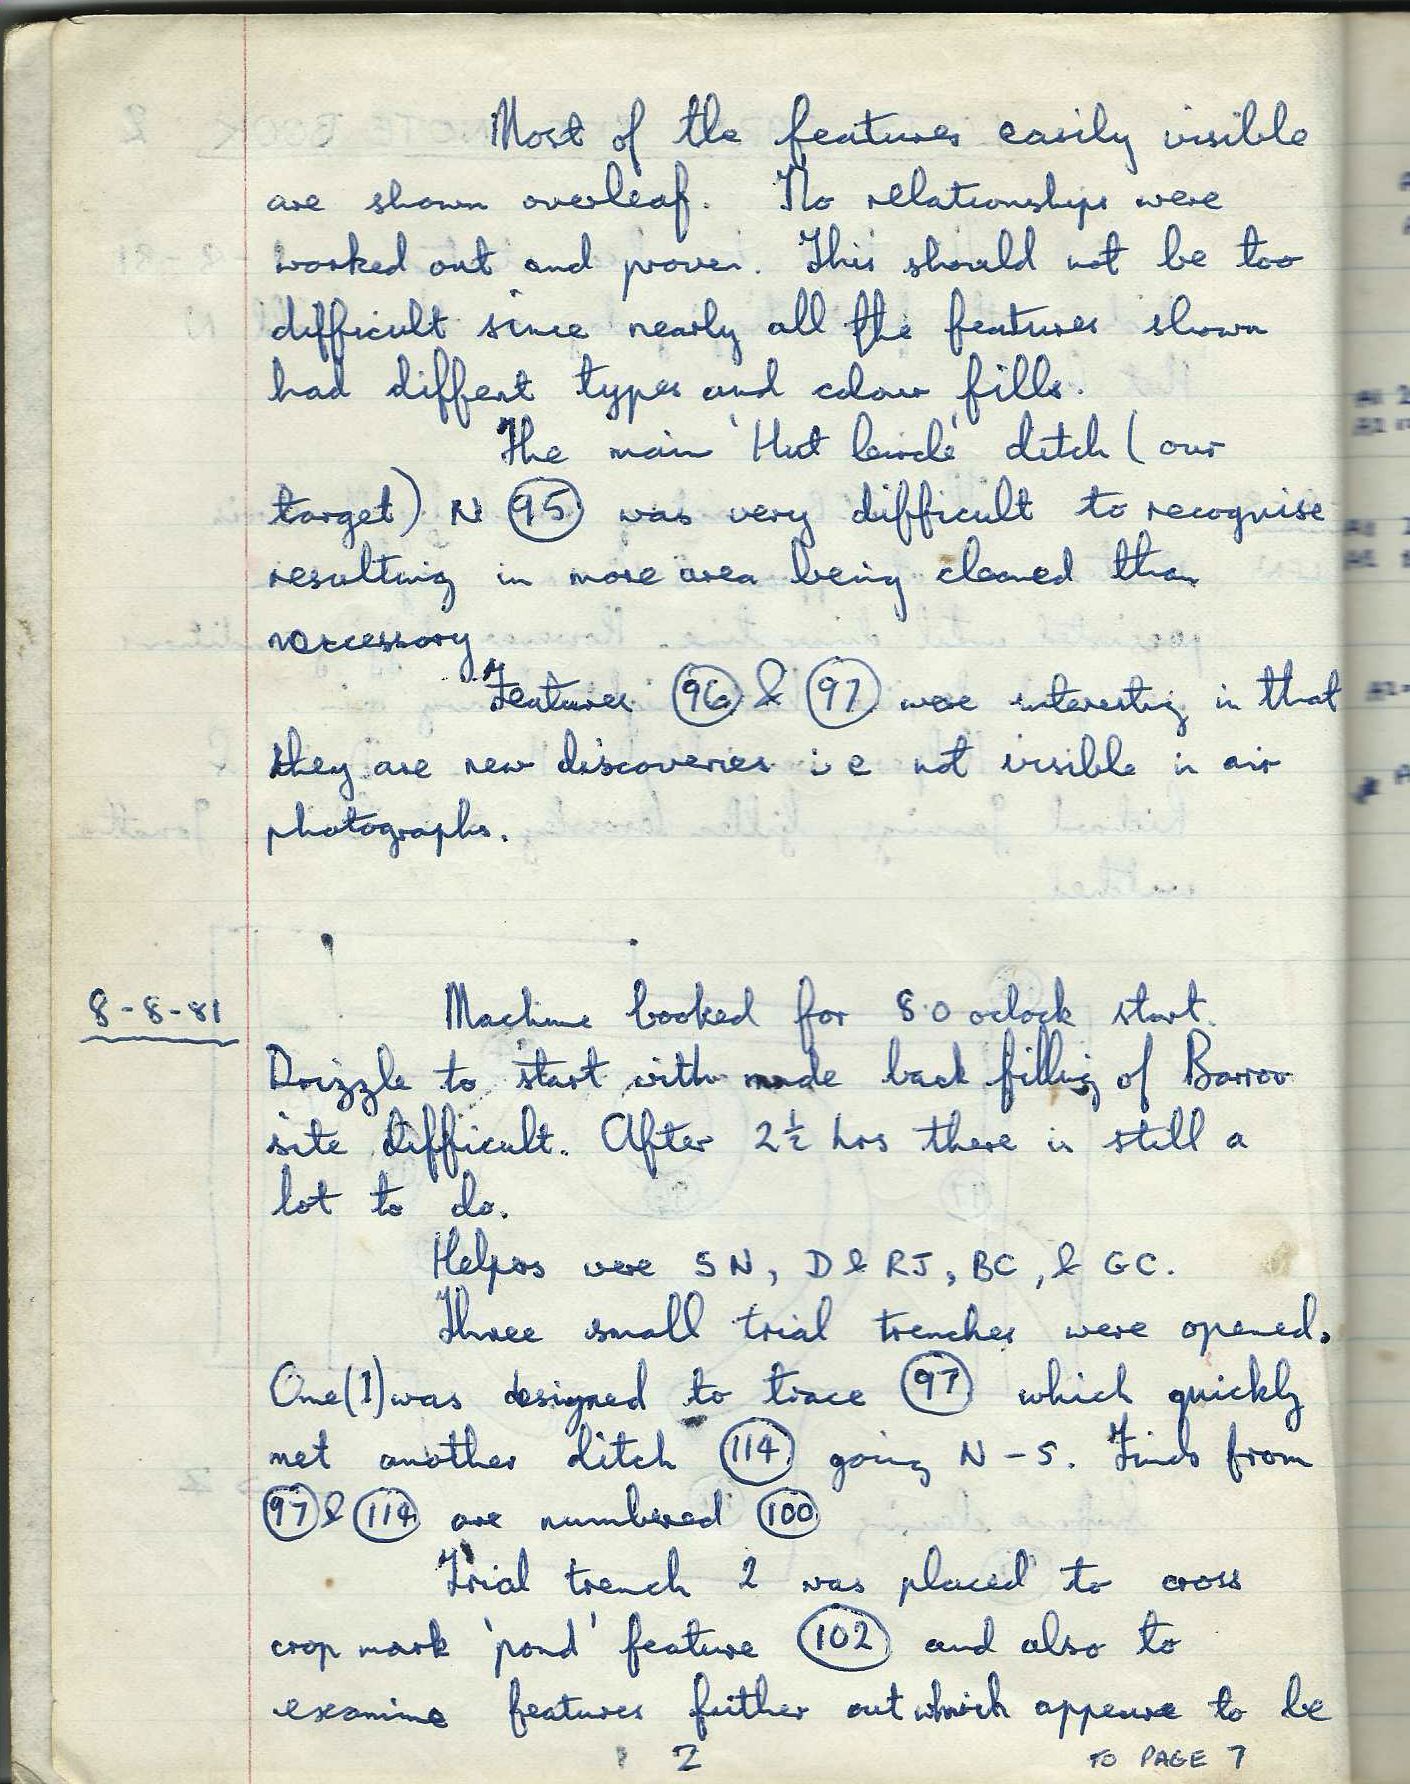 Most of the features easily visible
are shown overleaf. No relationships were
worked out and proven. This should not be too
difficult since nearly all the features shown
had differt types and colour fills.
The main 'Hut Circle' ditch (our
target) N 95 was very difficult to recognise
resulting in more area being cleaned than
neccessory
Features 96 & 97 were interesting in that
they are new discoveries i e not visible in air
photographs.
8-8-81
Machine booked for 8.0 oclock start.
Drizzle to start with made back filling of Barrow
site difficult. After 2½ hrs there is still a
lot to do.
Helpers were SN, D & RJ, BC, & GC.
Three small trial trenches were opened.
One (1) was designed to trace 97 which quickly
met another ditch 114 going N - S. Finds from
97 & 114 are numbered 100
Trial trench 2 was placed to cross
crop mark 'pond' feature 102 and also to
examine features further out which appeare to be
2 TO PAGE 7